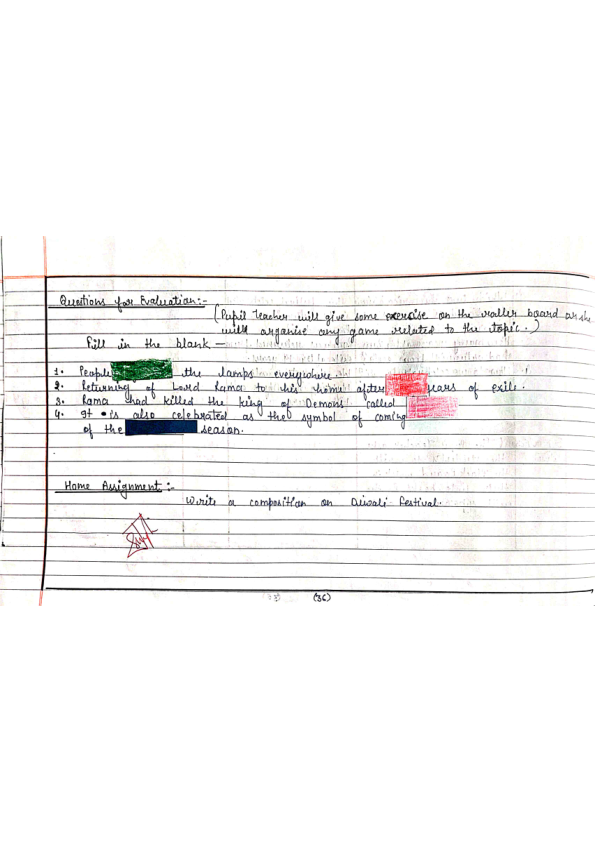 Questions for Evaluation:-
(Pupil teacher will give some exercise on the roller board or she
will organise any game related to the topic.)
Fill in the blank —
1. People the lamps everywhere.
2. Returning of Lord Rama to his home after years of exile.
3. Rama had killed the king of Demons called
4. It is also celebrated as the symbol of coming
of the season.
Home Assignment :-
Write a composition on Diwali festival.
(36)